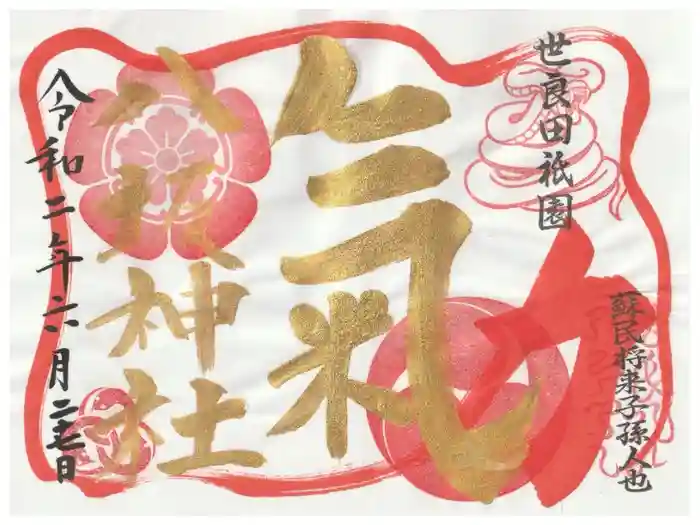 世良田祇園
蘇民将来子孫人也
氣
八坂神社
令和二年六月二七日